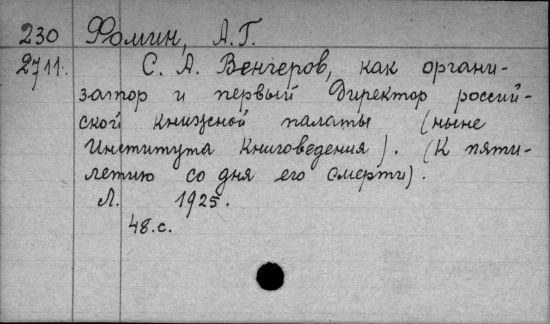 230 Фомин, А.Г.
2711. С. А. Венгеров, как органи-
затор и первый директор россий-
ской книжной палаты (ныне
Института книговедения). (К пяти-
летию со дня его смерти).
Л. 1925.
48.с.